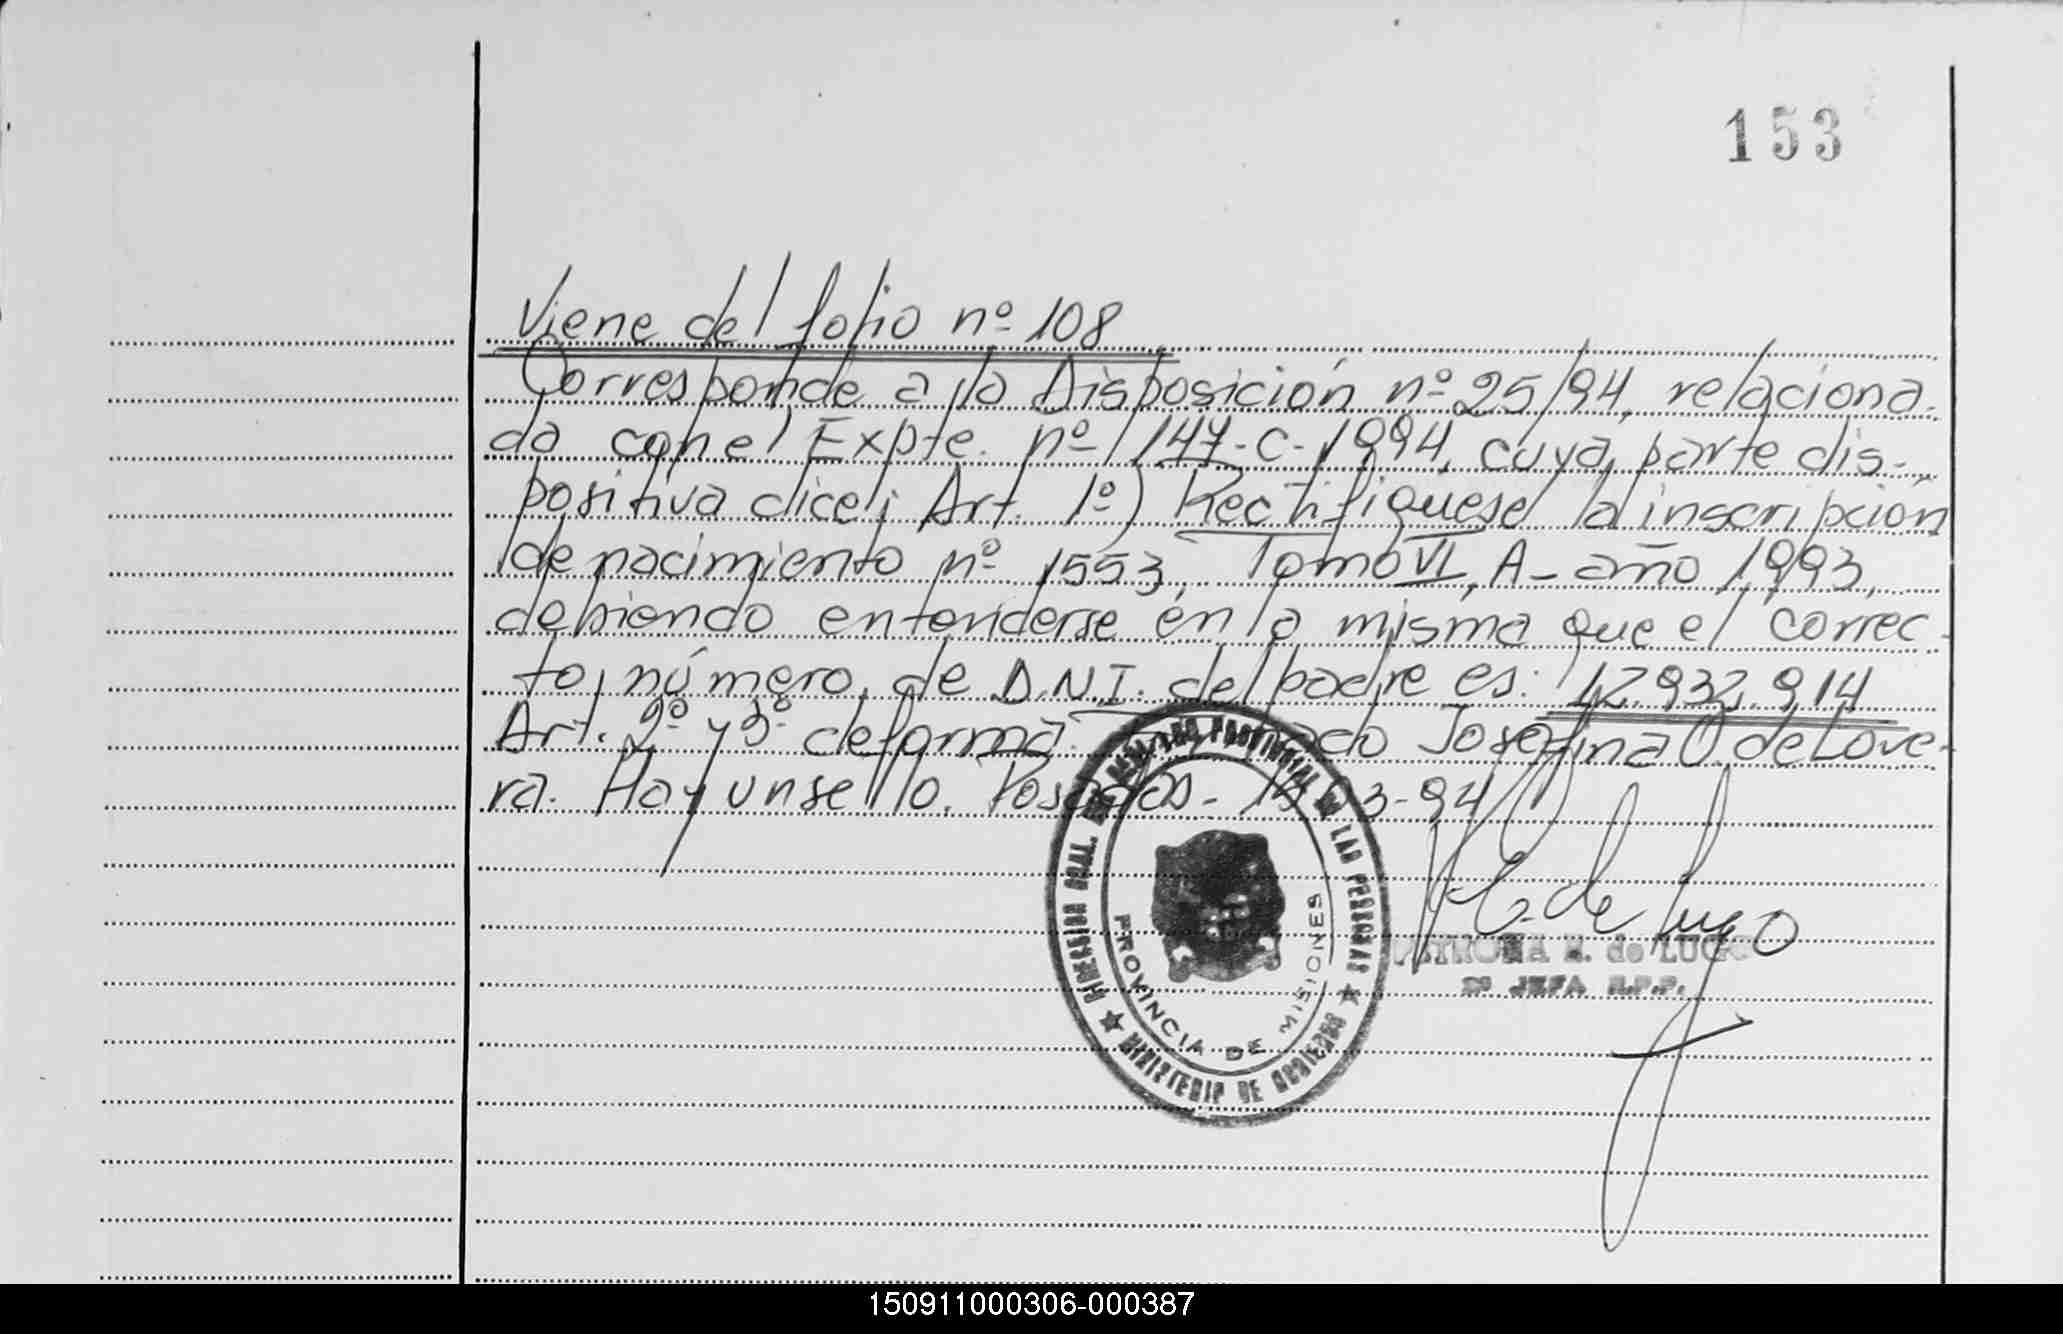 153
Viene del folio nº 108
Corresponde a la Disposición nº 25/94, relaciona-
da con el Expte. nº 147-C-1994, cuya parte dis-
positiva dice: Art. 1º) Rectifíquese la inscripción
de nacimiento nº 1553, Tomo VI, A- año 1993,
debiendo entenderse en la misma que el correc-
to número de D.N.I. del padre es: 12.932.914
Art. 2º y 3º de forma. Josefina O. de Love-
ra. Hay un sello. Posadas- 3-94
DIRECCION GRAL. DEL REGISTRO PROVINCIAL DE LAS PERSONAS
PROVINCIA DE MISIONES
MINISTERIO DE GOBIERNO
de Lugo
PATRONA N. de LUGO
2º JEFA R.P.P.
150911000306-000387